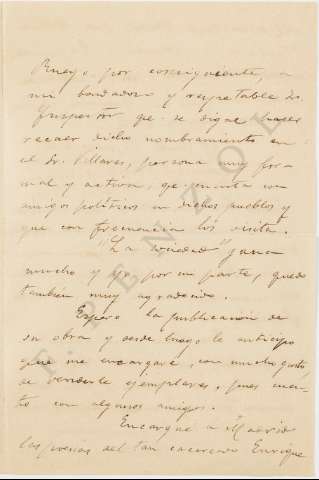 Ruego, por consiguiente, a
mi bondadoso y respetable Sr.
Inspector qe. se digne hacer
recaer dicho nombramiento en
el Sr. Villares, persona muy for
mal y activa, qe. cuenta con
amigos políticos en dichos pueblos y
que con frecuencia los visita.
"La Unidad" gana
mucho y yo, por mi parte, quedo
también muy agradecido.
Espero la publicación de
su obra y desde luego le anticipo
que me encargaré, con mucho gusto,
de venderle ejemplares, pues cuen-
to con algunos amigos.
Encargué a Madrid
las poesías del tan encerado Enrique
F. PENZOL